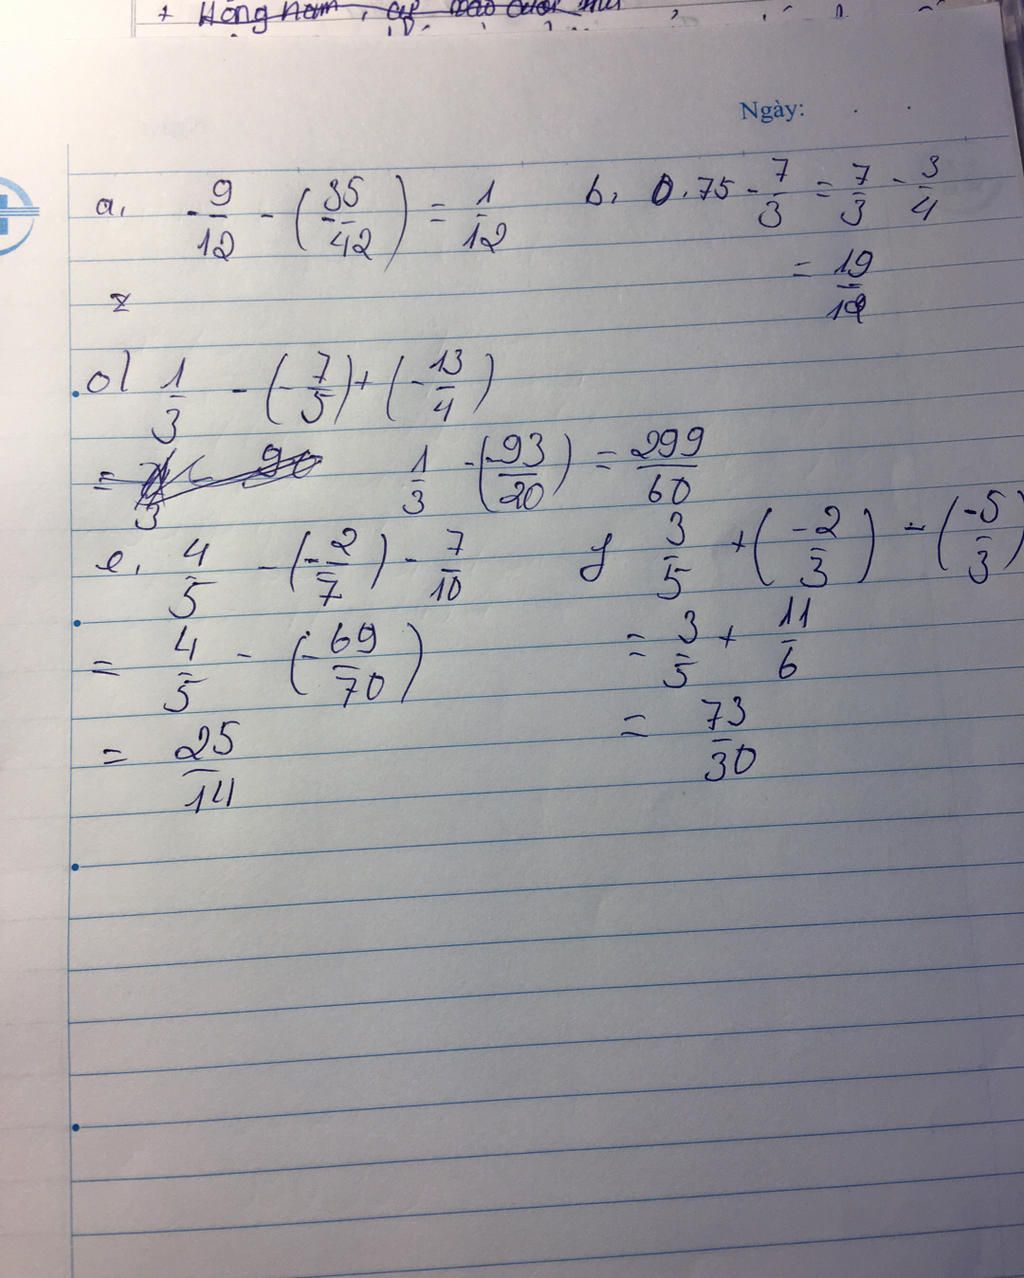 + Hồng nam,
Ngày:
a, -9/12 - (-35/42) = 1/12
b, 0.75 - 7/3 = 7/3 - 3/4
= 19/12
c) 1/3 - (-7/5) + (-13/4)
= 1/3 - (-93/20) = 299/60
e, 4/5 - (-2/7) - 7/10
= 4/5 - (-69/70)
= 25/14
f 3/5 + (-2/3) - (-5/3)
= 3/5 + 11/6
= 73/30